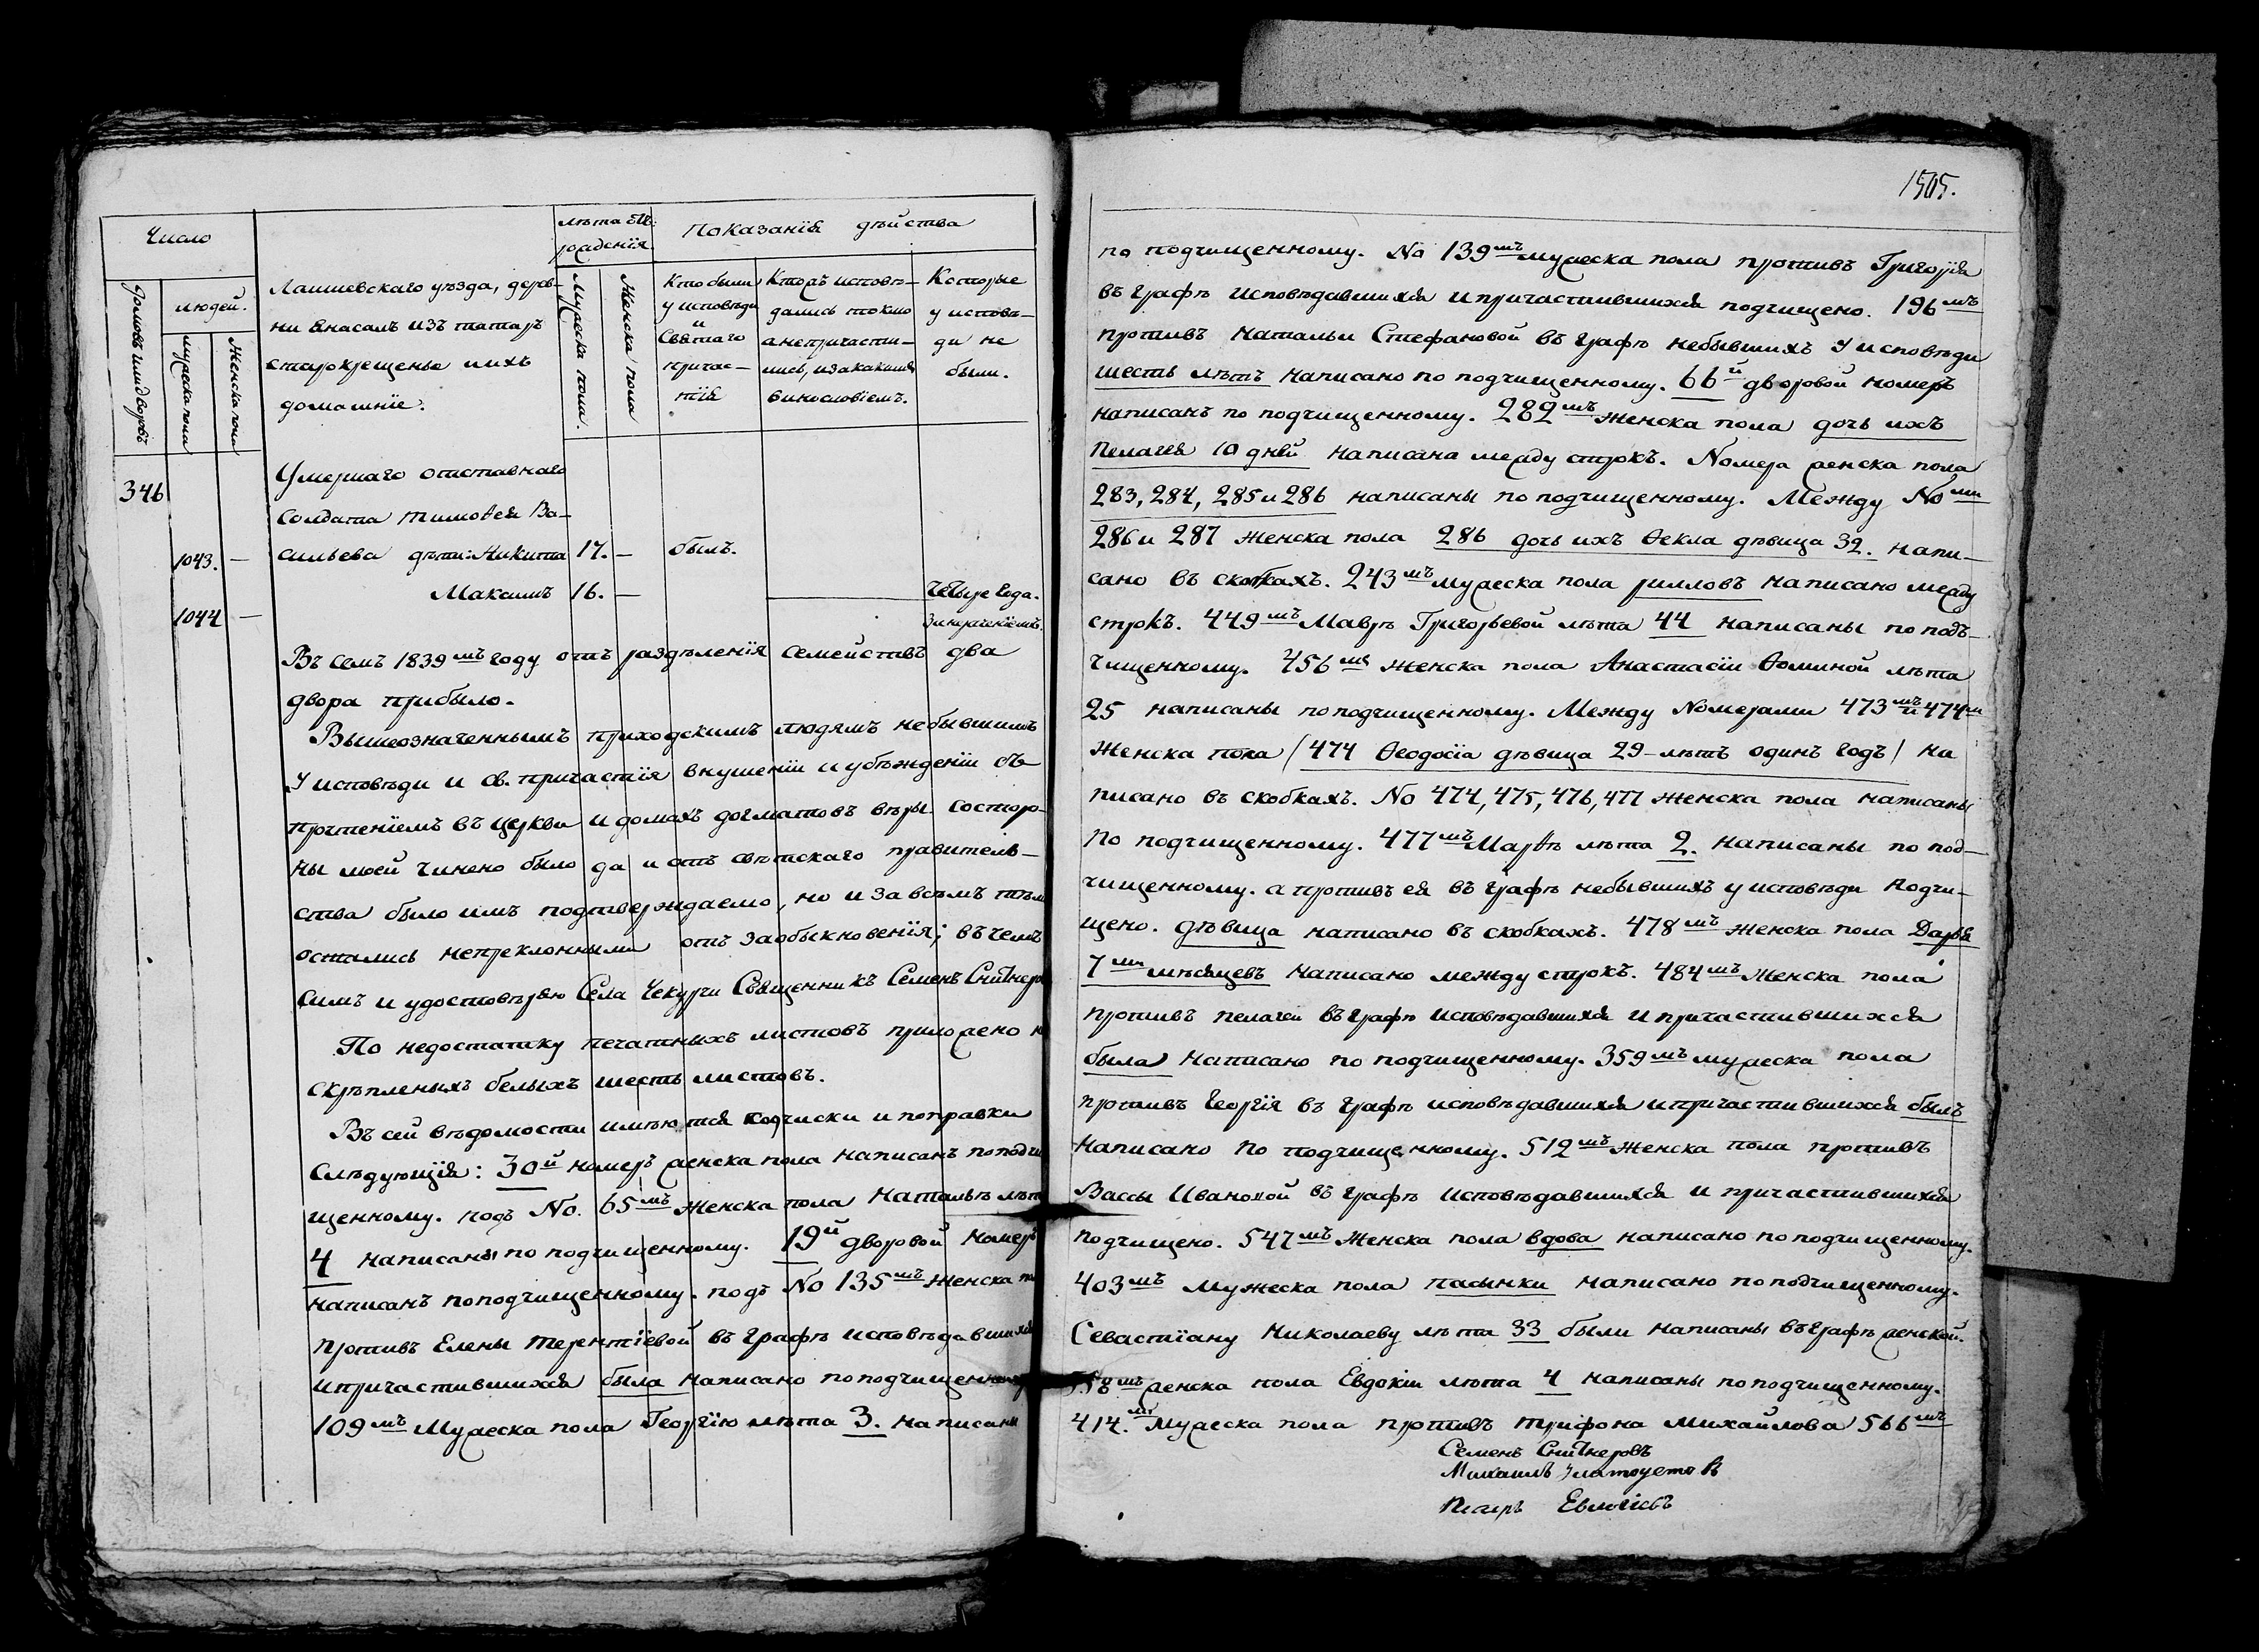 Число
людей.
Домовъ или дворовъ
мужеска пола
Женска пола
Лаишевскаго уѣзда, дерев-
ни изъ татаръ
старокрещеные и ихъ
домашніе.
лѣта отъ
рожденія.
Мужеска пола
Женска пола
Показанія дѣйства
Кто были
у исповѣди
и
Святаго
причас-
тія
исповѣ-
дались токмо
а непричасти-
лись, и за какимъ
винословіемъ.
Которые
у исповѣ-
ди не
были.
346
Умершаго отставнаго
солдата Тимоѳея Ва-
1043. — сильева дѣти: Никита 17. — былъ.
1044 — Максимъ 16. — Четыре года.
Въ семъ 1839мъ году отъ раздѣленія семействъ два
двора прибыло.
Вышеозначеннымъ приходскимъ людямъ небывшимъ
у исповѣди и св. причастія внушеніи и убѣжденіи съ
прочтеніемъ въ церкви и домахъ догматовъ вѣры состоро-
ны моей чинено было да и отъ свѣтскаго правитель-
ства было имъ подтверждаемо, но и за всѣмъ тѣмъ
остались непреклонными отъ заобыкновенія; въ чемъ
симъ и удостовѣряю Села Чекурчи Священникъ Семенъ
По недостатку печатныхъ листовъ приложено
скрѣпленыхъ белыхъ шесть листовъ.
Въ сей вѣдомости имѣются подчиски и поправки
слѣдующія: 30й номеръ женска пола написанъ по подчи
щенному. подъ No. 65мъ женска пола Натальѣ лѣта
4 написаны по подчищенному. 19й дворовой номеръ
написанъ по подчищенному. подъ No 135мъ женска
противъ Елены Терентіевой въ графѣ исповѣдавшихся
и причастившихся была написано по подчищенному
109мъ Мужеска пола Георгію лѣта 3. написаны
1505.
по подчищенному. No 139мъ мужеска пола противъ Григорія
въ графѣ исповѣдавшихся и причастившихся подчищено. 196мъ
противъ Натальи Стефановой въ графѣ небывшихъ у исповѣди
шесть лѣтъ написано по подчищенному. 66й дворовой номеръ
написанъ по подчищенному. 282мъ женска пола дочь ихъ
Пелагея 10 дней написана между строкъ. Номера женска пола
283, 284, 285 и 286 написаны по подчищенному. Между Noми
286 и 287 женска пола 286 дочь ихъ Ѳекла дѣвица 32. напи-
сано въ скобкахъ. 243мъ мужеска пола рилловъ написано между
строкъ. 449мъ Маврѣ Григорьевой лѣта 44 написаны по подъ-
чищенному. 456мъ женска пола Анастасіи Ѳоминой лѣта
25 написаны по подчищенному. Между Номерами 473мъ и 474мъ
Женска пола (474 Ѳеодосіа дѣвица 29-лѣтъ одинъ годъ) на
писано въ скобкахъ. No 474, 475, 476, 477 женска пола написаны
по подчищенному. 477мъ Марѳѣ лѣта 2. написаны по под-
чищенному. а противъ ея въ графѣ небывшихъ у исповѣди подчи-
щено. дѣвица написано въ скобкахъ. 478мъ женска пола Дарья
7ми мѣсяцевъ написано между строкъ. 484мъ женска пола
противъ Пелагеи въ графѣ исповѣдавшихся и причастившихся
была написано по подчищенному. 359мъ мужеска пола
противъ Георгія въ графѣ исповѣдавшихся и причастившихся былъ
написано по подчищенному. 512мъ женска пола противъ
Вассы Ивановой въ графѣ исповѣдавшихся и причастившихся
подчищено. 547мъ женска пола вдова написано по подчищенному.
403мъ мужеска пола пасынки написано по подчищенному.
Севастіану Николаеву лѣта 33 были написаны въ графѣ женской.
558мъ женска пола Евдокіи лѣта 4 написаны по подчищенному.
414.мъ мужеска пола противъ Трифона Михайлова 566мъ
Семенъ
Михаилъ
Петръ Евлогіевъ